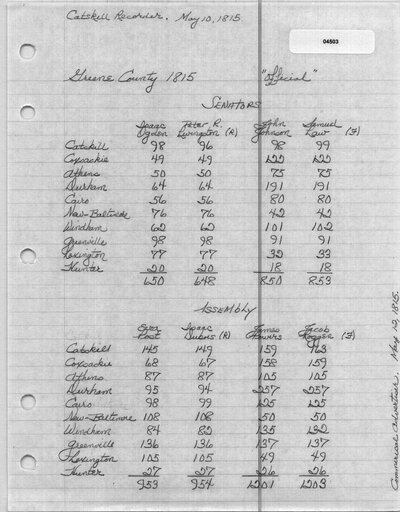 Catskill Recorder. May 10, 1815.
04503
Greene County 1815 "Official"
SENATORS
Isaac Peter R. John Samuel
Ogden Livingston (R) Johnson Law (F)
Catskill 98 96 98 99
Coxsackie 49 49 122 122
Athens 50 50 75 75
Durham 64 64 191 191
Cairo 56 56 80 80
New-Baltimore 76 76 42 42
Windham 62 62 101 102
Greenville 98 98 91 91
Lexington 77 77 32 33
Hunter 20 20 18 18
650 648 850 853
ASSEMBLY
Isaac James Jacob
Post Dubois (R) Powers (F)
Catskill 145 149 159 163
Coxsackie 68 67 158 159
Athens 87 87 105 105
Durham 95 94 257 257
Cairo 98 99 125 125
New-Baltimore 108 108 50 50
Windham 84 82 135 132
Greenville 136 136 137 137
Lexington 105 105 49 49
Hunter 27 27 26 26
953 954 1201 1203
Commercial Advertiser. May 12, 1815.